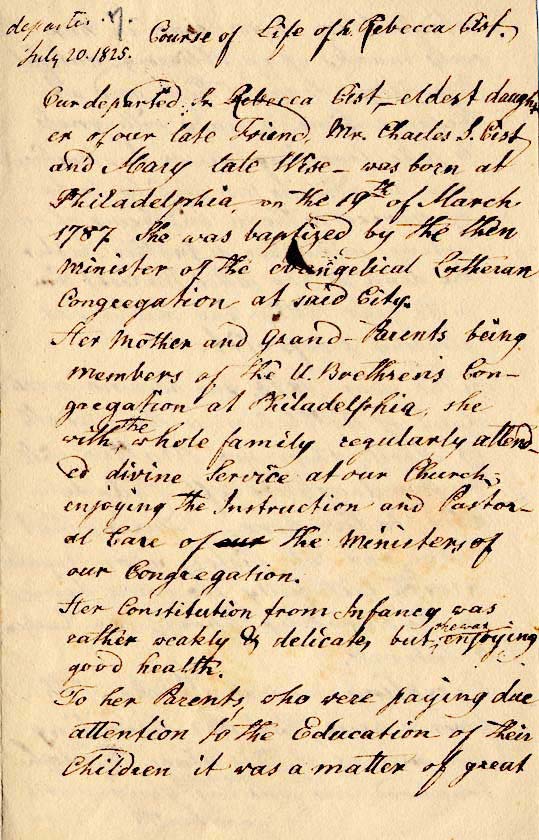 departed
July 20. 1825.
Course of Life of Sr. Rebecca Cist.
Our departed Sr. Rebecca Cist, eldest daught-
er of our late Friend, Mr. Charles J. Cist
and Mary late Wise – was born at
Philadelphia, on the 19th of March.
1787. She was baptized by the then
Minister of the evangelical Lutheran
Congregation at said City.
Her Mother and Grand-Parents being
members of the U. Brethren's Con-
gregation at Philadelphia, she
with the whole family regularly attend-
ed divine Service at our Church,
enjoying the Instruction and Pastor-
al Care of our the Ministers of
our Congregation.
Her Constitution from Infancy was
rather weakly & delicate, but she was enjoying
good health.
To her Parents, who were paying due
attention to the Education of their
Children it was a matter of great